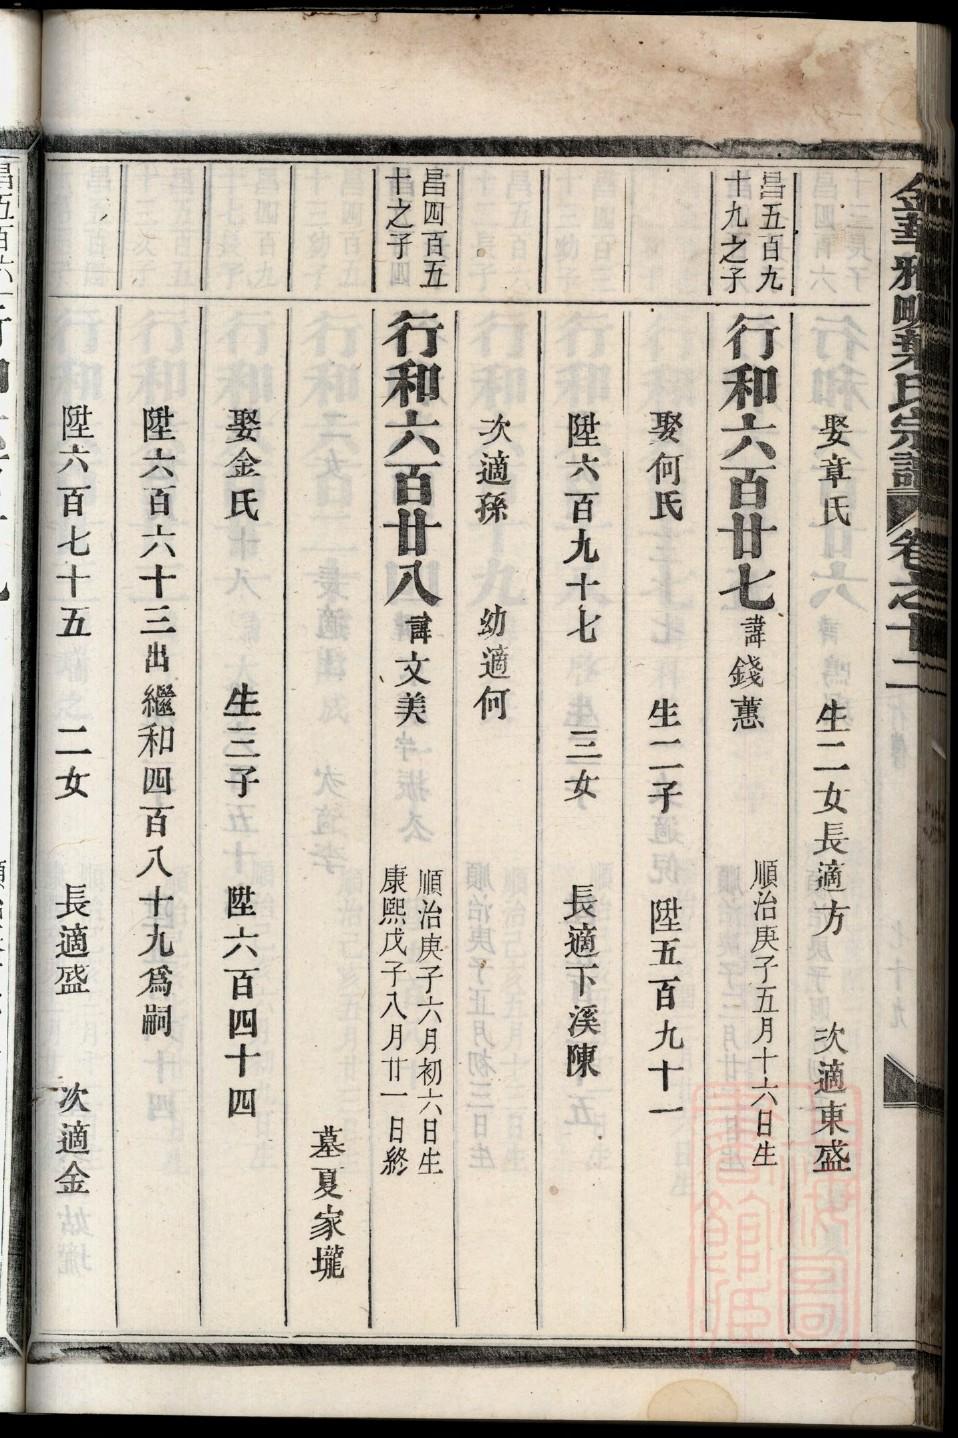 金華雅畈葉氏宗譜 卷之十二
娶章氏 生二女長適方 次適東盛
昌五百九十九之子
行和六百廿七 諱錢蕙 順治庚子五月十六日生
娶何氏 生二子 陞五百九十一
陞六百九十七 三女 長適下溪陳
次適孫 幼適何
昌四百五十之子
行和六百廿八 諱文美 順治庚子六月初六日生
康熙戊子八月廿一日終
墓夏家壠
娶金氏 生三子 陞六百四十四
陞六百六十三出繼和四百八十九爲嗣
陞六百七十五 二女 長適盛 次適金